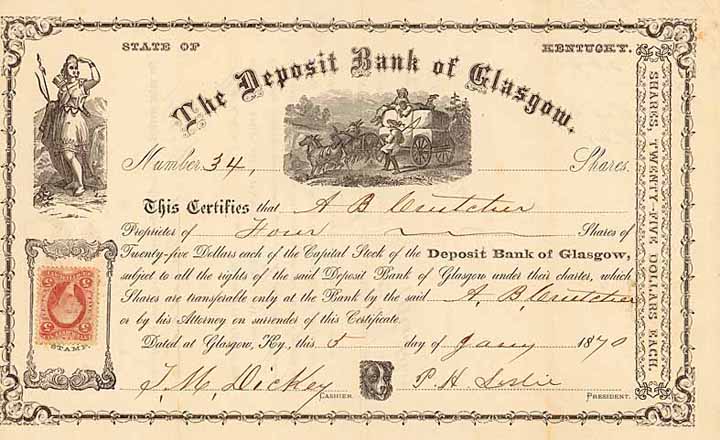 STATE OF KENTUCKY.
The Deposit Bank of Glasgow.
Number 34, Shares.
This Certifies that A B Crutcher
Proprietor of Four Shares of
Twenty-five Dollars each of the Capital Stock of the Deposit Bank of Glasgow,
subject to all the rights of the said Deposit Bank of Glasgow under their charter, which
Shares are transferable only at the Bank by the said A. B. Crutcher
or by his Attorney on surrender of this Certificate.
Dated at Glasgow, Ky., this 5 day of Jany 1870
J. M. Dickey CASHIER. P. H. Leslie PRESIDENT.
STAMP.
SHARES, TWENTY-FIVE DOLLARS EACH.